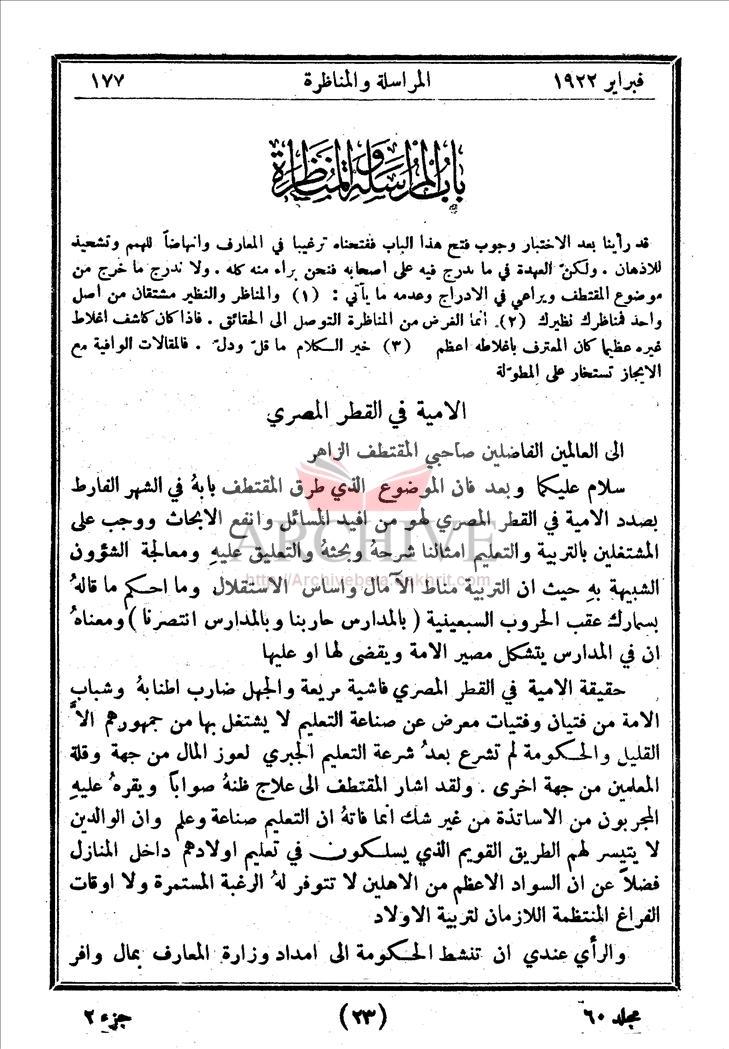 فبراير ١٩٢٢ المراسلة والمناظرة ١٧٧
باب المراسلة والمناظرة
قد رأينا بعد الاختبار وجوب فتح هذا الباب ففتحناه ترغيبا في المعارف وانهاضاً للهمم وتشحيذ
للاذهان . ولكنّ العهدة في ما يدرج فيه على اصحابه فنحن براء منه كله . ولا ندرج ما خرج عن
موضوع المقتطف ويراعي في الادراج وعدمه ما يأتي : (١) والمناظر والنظير مشتقان من اصل
واحد فمناظرك نظيرك (٢) انما الغرض من المناظرة التوصل الى الحقائق . فاذا كان كاشف اغلاط
غيره عظيما كان المعترف باغلاطه اعظم (٣) خير الكلام ما قلّ ودلّ . فالمقالات الوافية مع
الايجاز تستخار على المطولة
الامية في القطر المصري
الى العالمين الفاضلين صاحبي المقتطف الزاهر
سلام عليكما وبعد فان الموضوع الذي طرق المقتطف بابهُ في الشهر الفارط
بصدد الامية في القطر المصري لهو من افيد المسائل وانفع الابحاث ووجب على
المشتغلين بالتربية والتعليم امثالنا شرحهُ وبحثهُ والتعليق عليهِ ومعالجة الشؤون
الشبيهة بهِ حيث ان التربية مناط الآمال واساس الاستقلال وما احكم ما قالهُ
بسمارك عقب الحروب السبعينية (بالمدارس حاربنا وبالمدارس انتصرنا) ومعناهُ
ان في المدارس يتشكل مصير الامة ويقضى لها او عليها
حقيقة الامية في القطر المصري فاشية مريعة والجهل ضارب اطنابهُ وشباب
الامة من فتيان وفتيات معرض عن صناعة التعليم لا يشتغل بها من جمهورهم الاَّ
القليل والحكومة لم تشرع بعدُ شرعة التعليم الجبري لعوز المال من جهة وقلة
المعلمين من جهة اخرى . ولقد اشار المقتطف الى علاج ظنهُ صواباً ويقرهُ عليهِ
المجربون من الاساتذة من غير شك انما فاتهُ ان التعليم صناعة وعلم وان الوالدين
لا يتيسر لهم الطريق القويم الذي يسلكون في تعليم اولادهم داخل المنازل
فضلاً عن ان السواد الاعظم من الاهلين لا تتوفر لهُ الرغبة المستمرة ولا اوقات
الفراغ المنتظمة اللازمان لتربية الاولاد
والرأي عندي ان تنشط الحكومة الى امداد وزارة المعارف بمال وافر
مجلد ٦٠ (٢٣) جزء ٢
ARCHIVE
http://Archivebeta.Sakhrit.com